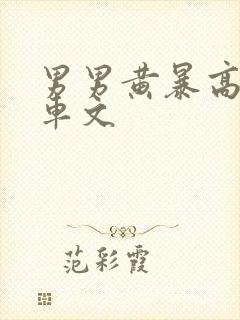 男男黄暴高
車文
范彩霞